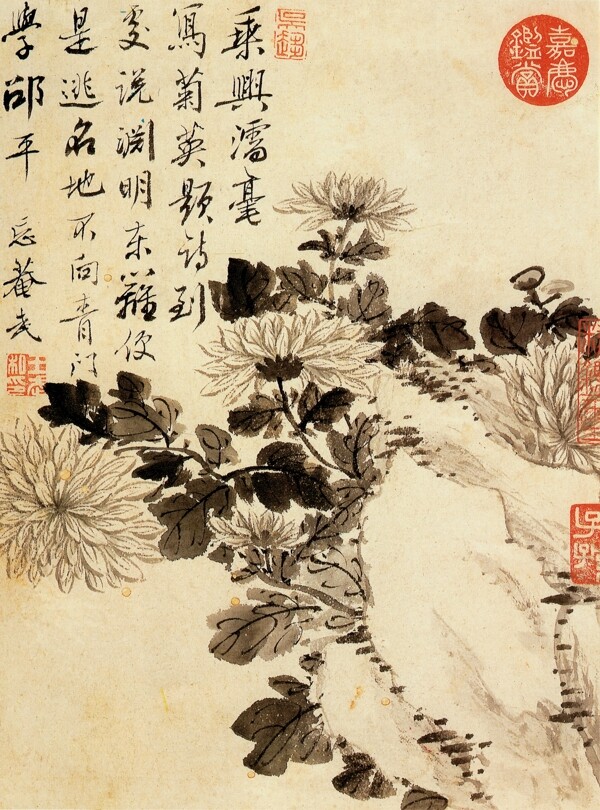 乘興濡毫
寫菊英題詩到
處説淵明東籬便
是逃名地不向青門
學邵平 忘菴武
嘉慶鑑賞